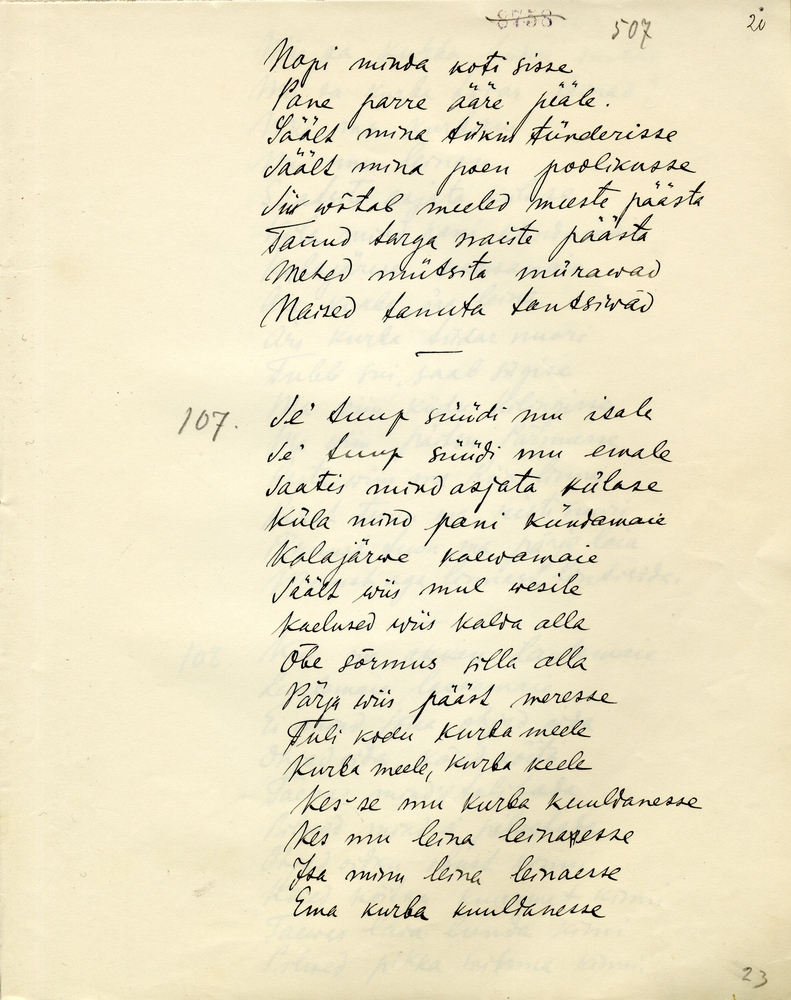 8758
507
20
Nopi minda koti sisse
Pane parre ääre pääle.
Säält mina tükin tünderisse
Säält mina poen poolikusse
Siis wõtab meeled meeste päästa
Tanud targa naiste päästa
Mehed mütsita mürawad
Naised tanuta tantsiwad
107.
Se' suur süüdi mu isale
Se' suur süüdi mu emale
Saatis mind asjata külase
Küla mind pani kündamaie
Kalajärwe kaewamaie
Säält wiis mul wesile
Kaelused wiis kalda alla
Õbe sõrmus silla alla
Pärja wiis pääst meresse
Tuli kodu kurba meele
Kurba meele, kurba keele
Kes se mu kurba kuuldanesse
Kes mu leina leinanesse
Isa minu leina leinaesse
Ema kurba kuuldanesse
23